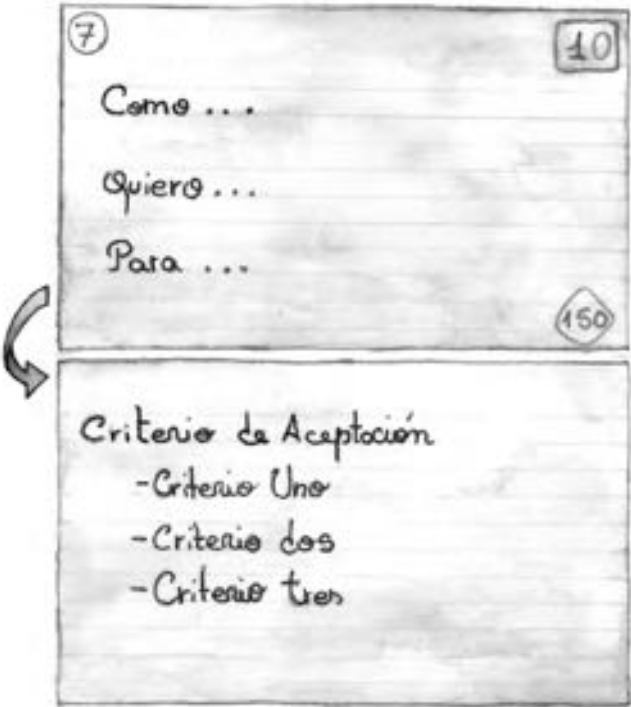 7
10
Como ...
Quiero ...
Para ...
150
Criterio de Aceptación
-Criterio Uno
-Criterio dos
-Criterio tres